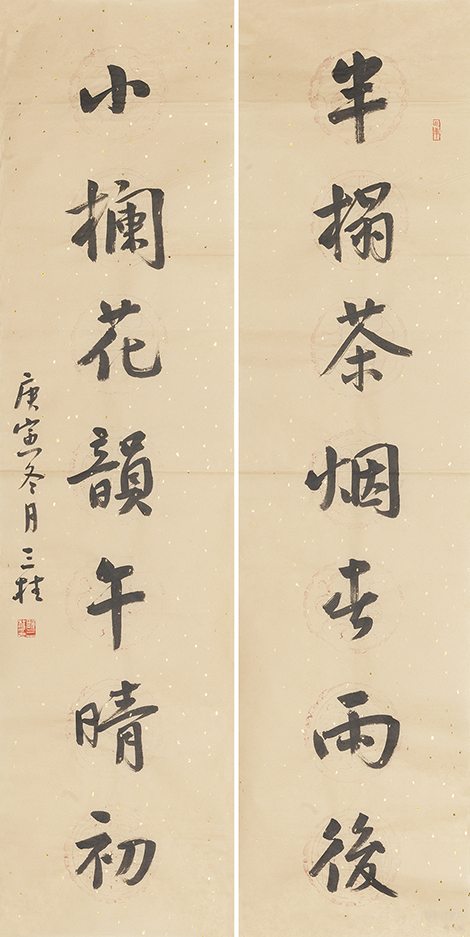 半榻茶烟春雨後
小欄花韻午晴初
庚寅冬月三桂